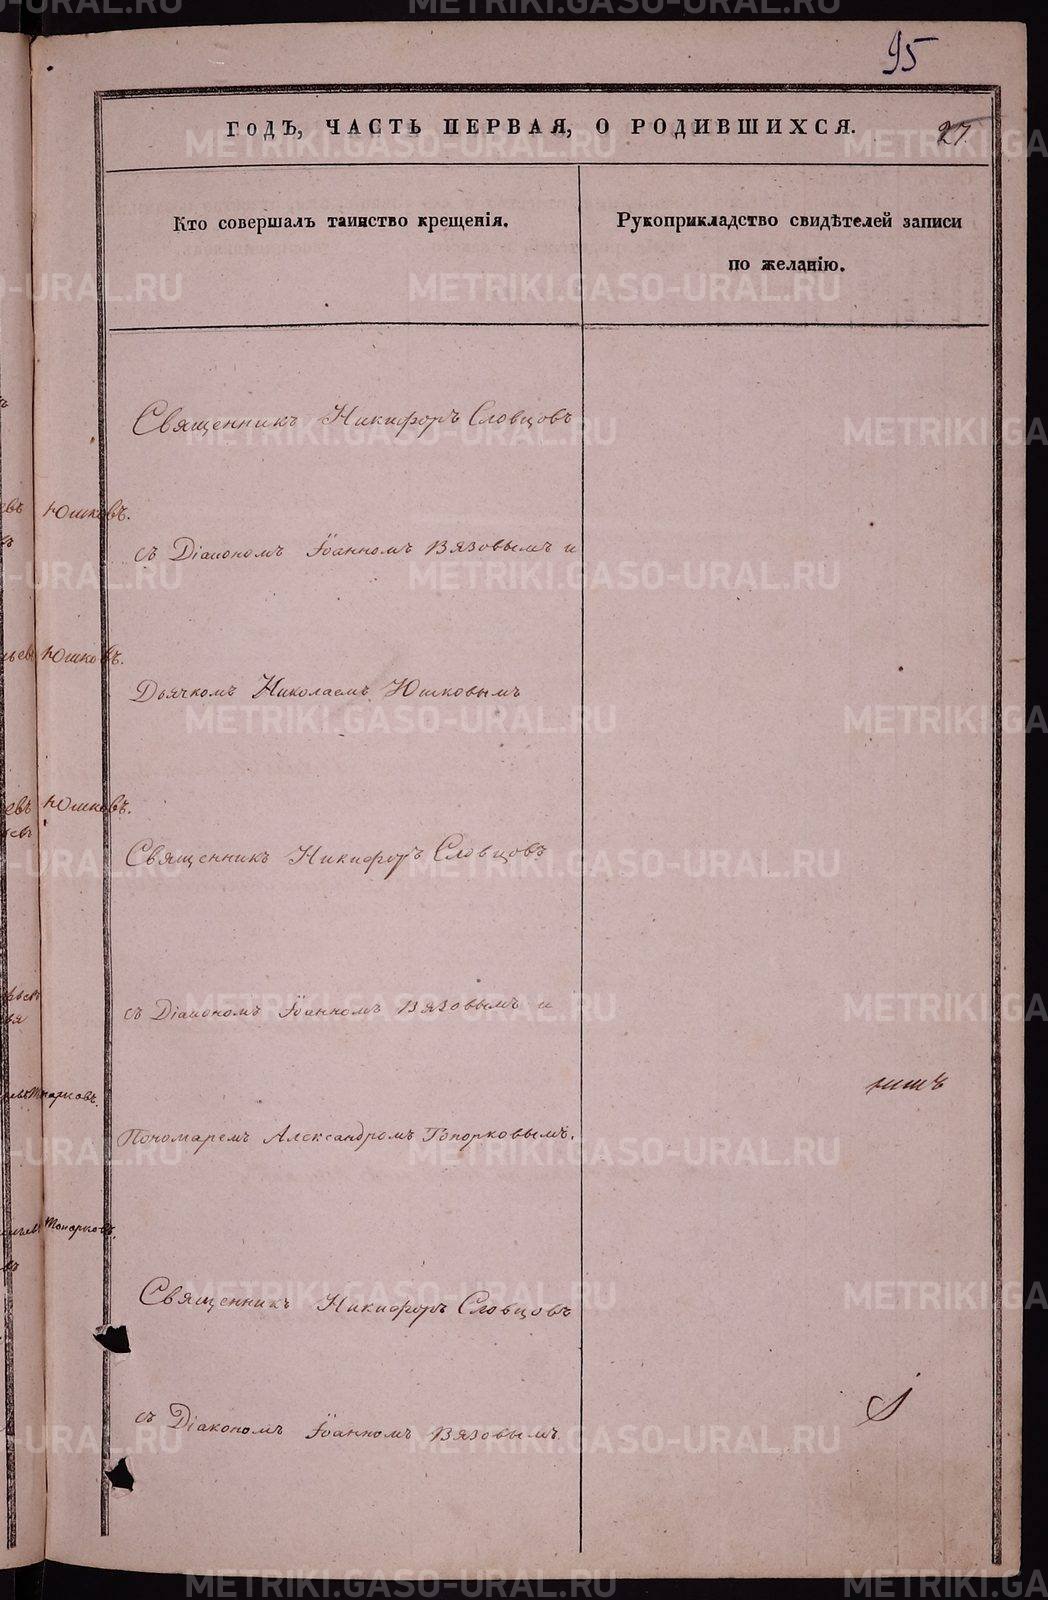 95
ГОДЪ, ЧАСТЬ ПЕРВАЯ, О РОДИВШИХСЯ.
27.
Кто совершалъ таинство крещенія.
Рукоприкладство свидѣтелей записи
по желанію.
Священникъ Никифоръ Словцовъ
Юшковъ.
съ Діакономъ Іоанномъ Вязовымъ и
Юшковъ.
Дьячкомъ Николаемъ Юшковымъ
Юшковъ.
Священникъ Никифоръ Словцовъ
съ Діакономъ Іоанномъ Вязовымъ и
Пономаремъ Александромъ Топорковымъ.
Священникъ Никифоръ Словцовъ
съ Діакономъ Іоанномъ Вязовымъ
METRIKI.GASO-URAL.RU